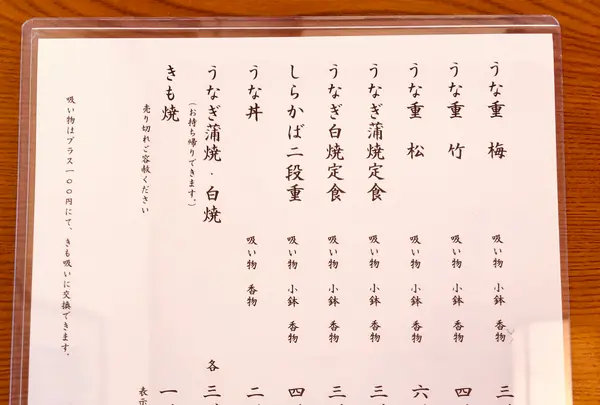 うな重 梅 吸い物 小鉢 香物 三
うな重 竹 吸い物 小鉢 香物 四
うな重 松 吸い物 小鉢 香物 六
うなぎ蒲焼定食 吸い物 小鉢 香物 三
うなぎ白焼定食 吸い物 小鉢 香物 三
しらかば二段重 吸い物 小鉢 香物 四
うな丼 吸い物 香物 二
うなぎ蒲焼・白焼 各 三
(お持ち帰りできます。)
きも焼 一
売り切れご容赦ください 表示
吸い物はプラス一〇〇円にて、きも吸いに交換できます。